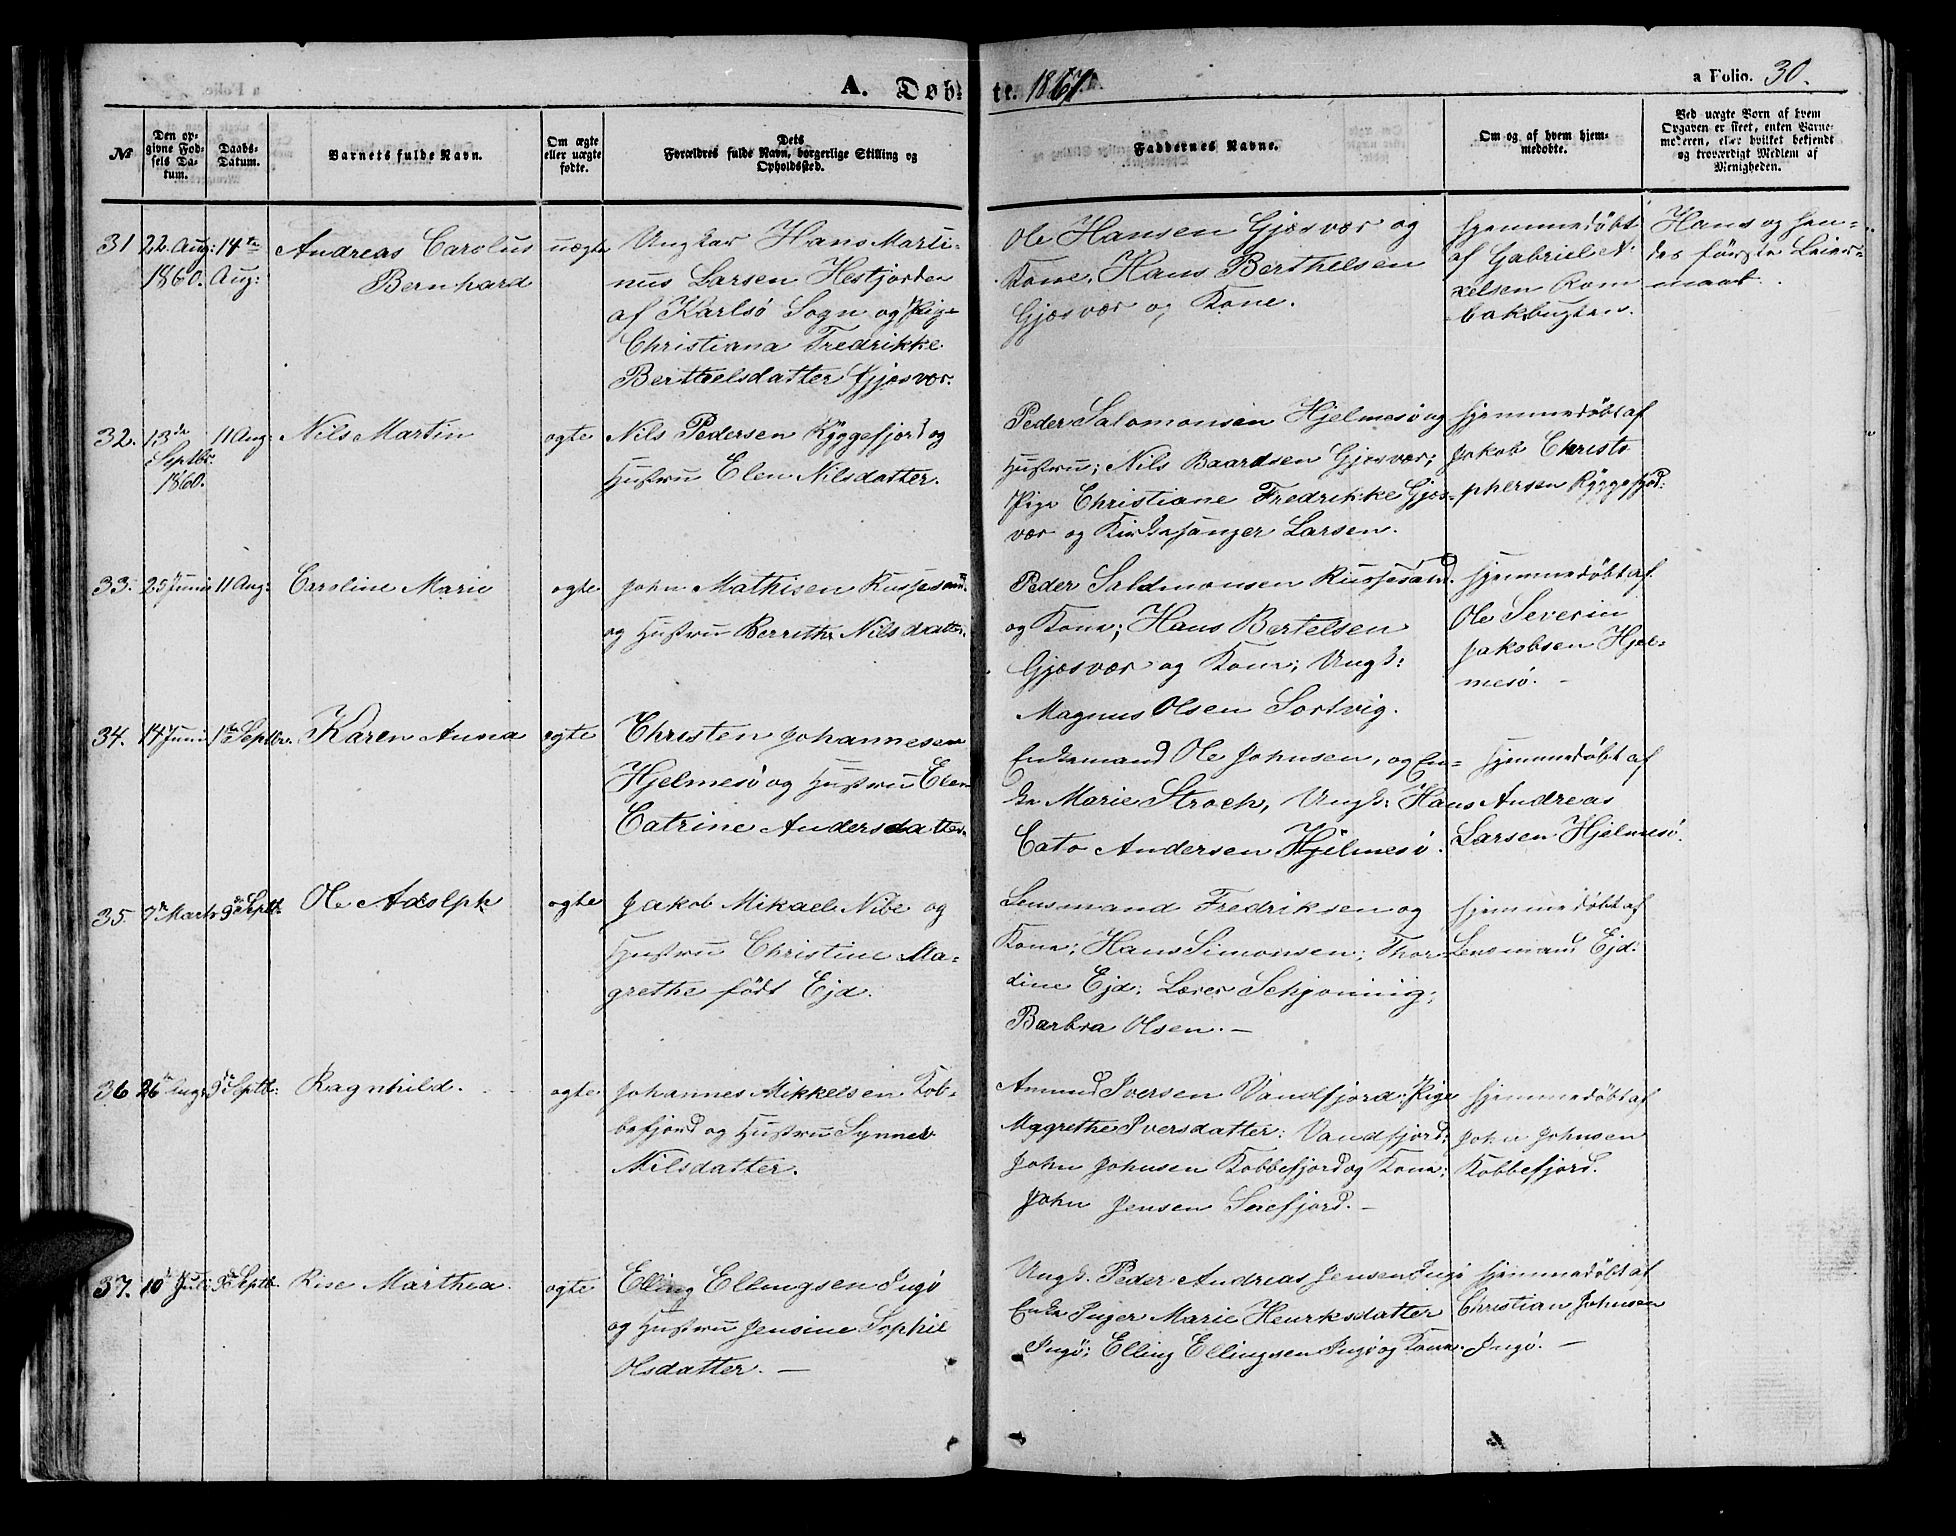 A. Døbte. 1861.
a Folio. 30.
№
Den opgivne Fødsels Datum.
Daabs-Datum.
Barnets fulde Navn.
Om ægte eller uægte fødte.
Dets Forældres fulde Navn, borgerlige Stilling og Opholdssted.
Faddernes Navne.
Om og af hvem hjemmedøbte.
Ved uægte Børn af hvem Opgaven er skeet, enten Barnemoderen, eller hvilket bekjendt og troværdigt Medlem af Menigheden.
31 22. Aug: 14de uægte
1860. Aug:
Andreas Carolus
Bernhard
Ungkar Hans Marti-
nus Larsen Hestfjorden
af Karlsö Sogn og Pige
Christiana Fredrikke
Berthelsdatter Gjæsvær.
Ole Hansen Gjæsvær og
Kone, Hans Berthelsen
Gjæsvær og Kone.
Hjemmedöbt
af Gabriel A-
xelsen Kam
bakbugten.
Hans og hen-
des förste Leier-
maal.
32. 13de 11 Aug: Nils Martin ægte
Septbr.
1860.
Nils Pedersen Ryggefjord og
Hustru Elen Nilsdatter.
Peder Salomonsen Hjelmesö og
Hustru; Nils Baardsen Gjæsvær;
Pige Christiane Fredrikke Gjæs-
vær og Kirkesanger Larsen.
Hjemmedöbt af
Jakob Christo
phersen Ryggefjord.
33. 25 Juni 11 Aug: Caroline Marie ægte
John Mathisen Russesund
og Hustru Berrethe Nilsdatter.
Peder Salomonsen Russesund
og Kone; Hans Bertelsen
Gjæsvær og Kone; Ungk:
Magnus Olsen Sortvig.
Hjemmedöbt af
Ole Severin
Jakobsen Hjel-
mesö. –
34. 14 Juni 1ste Septbr. Karen Anna ægte
Christen Johannesen
Hjelmesö og Hustru Elen
Catrine Andersdatter.
Enkemand Ole Johnsen, og En-
ke Marie Stroch, Ungk: Hans
Cato Andersen Hjelmesö.
Hjemmedöbt af
Andreas
Larsen Hjelmesö.
35. 7de Marts 9de Septb. Ole Adolph ægte
Jakob Mikael Nibe og
Hustru Christine Ma-
grethe född Ejd.
Lensmand Fredriksen og
Kone; Hans Simonsen; Thor-
dine Ejd; Lærer Schjönning;
Barbra Olsen. –
Hjemmedöbt af
Lensmand Ejd.
36 26de Aug: 9de Septb: Ragnhild. ægte
Johannes Mikkelsen Kob-
befjord og Hustru Synnev
Nilsdatter.
Amund Iversen Vandfjord; Pige
Magrethe Iversdatter: Vandfjord;
John Johnsen Kobbefjord og Kone;
John Jensen Snefjord. –
Hjemmedöbt af
John Johnsen
Kobbefjord.
37. 10de Juli 9de Septb. Rise Marthea. ægte
Elling Ellingsen Ingö
og Hustru Jensine Sophie
Olsdatter. –
Ungk. Peder Andreas Jensen Ingö
Enke Inger Marie Henriksdatter
Ingö; Elling Ellingsen Ingö og Kone.
Hjemmedöbt af
Christian Johnsen
Ingö. –